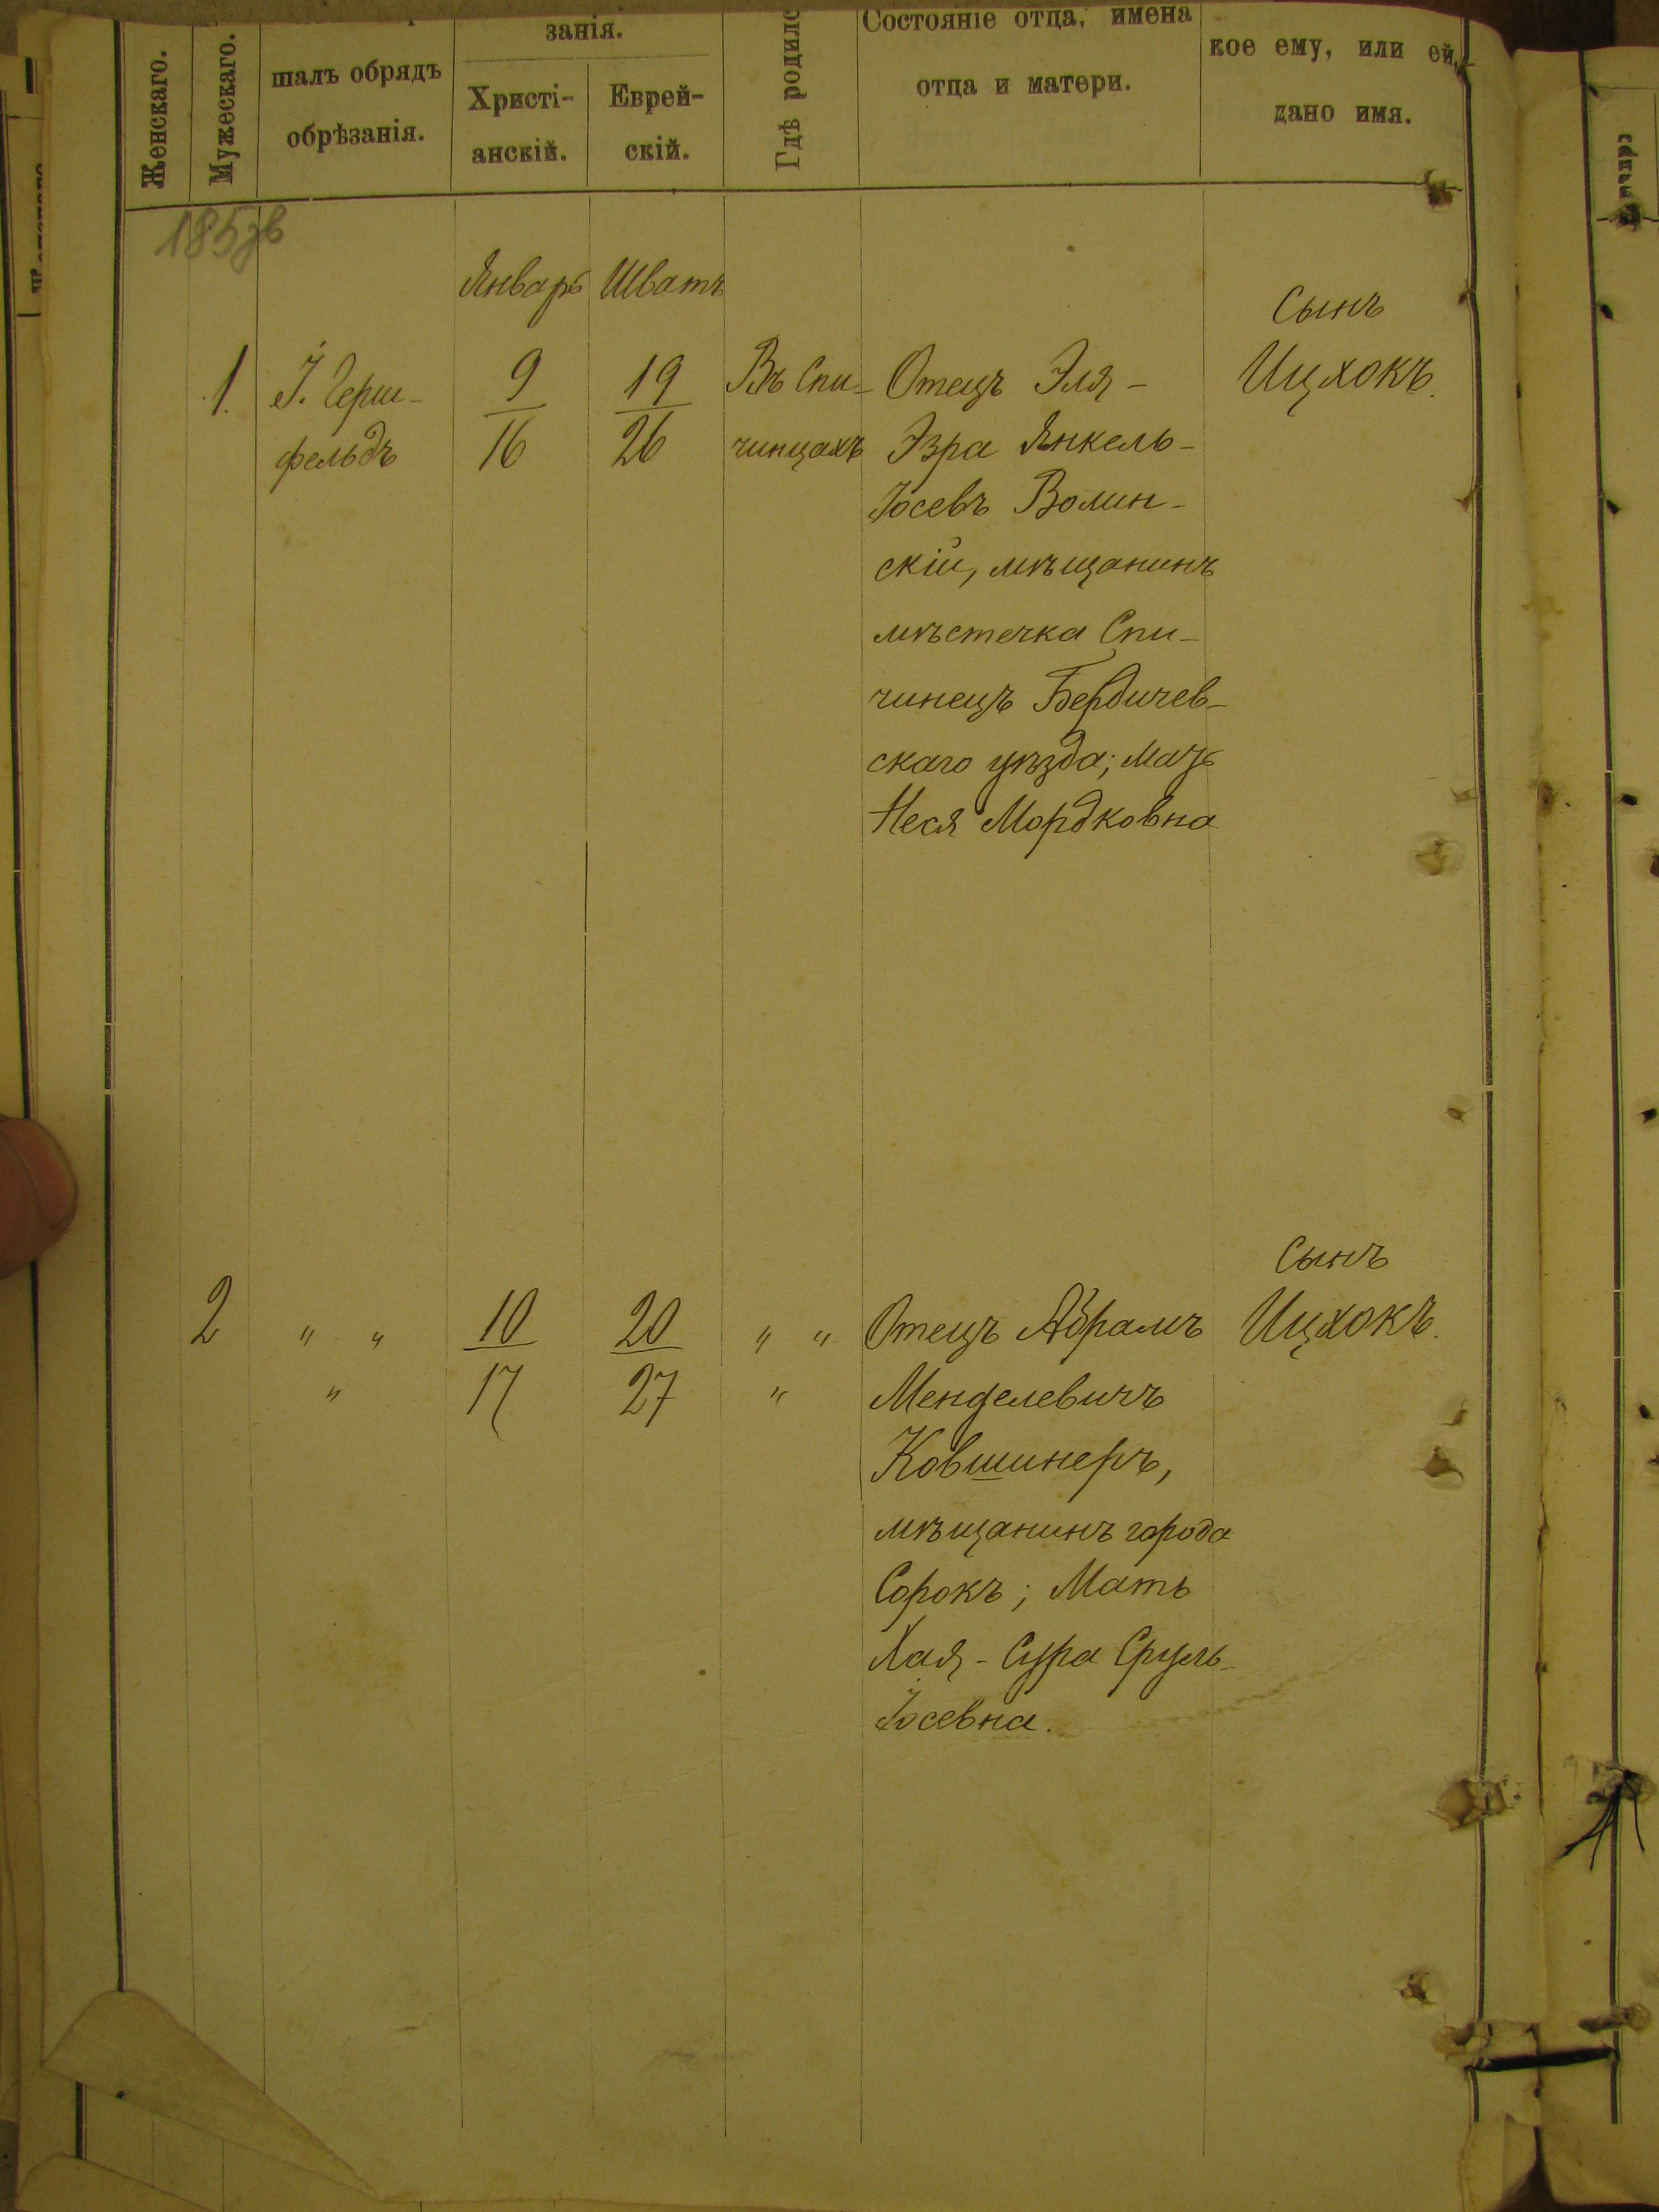 Женскаго.
Мужескаго.
шалъ обрядъ
обрѣзанія.
занія.
Христі-
анскій.
Еврей-
скій.
Гдѣ родилс
Состояніе отца, имена
отца и матери.
кое ему, или ей,
дано имя.
Январь Шватъ
Сынъ
1. І. Герш- 9 19 Въ Спи- Отецъ Эля- Ицхокъ.
фельдъ 16 26 чинцахъ Эзра Янкель-
Іосевъ Волин-
скій, мѣщанинъ
мѣстечка Спи-
чинецъ Бердичев-
скаго уѣзда; мать
Неся Мордковна
Сынъ
2 " " 10 20 " " Отецъ Абрамъ Ицхокъ.
" 17 27 " Менделевичъ
Ковшинеръ,
мѣщанинъ города
Сорокъ; Мать
Хая-Сура Сруль-
Іосевна.